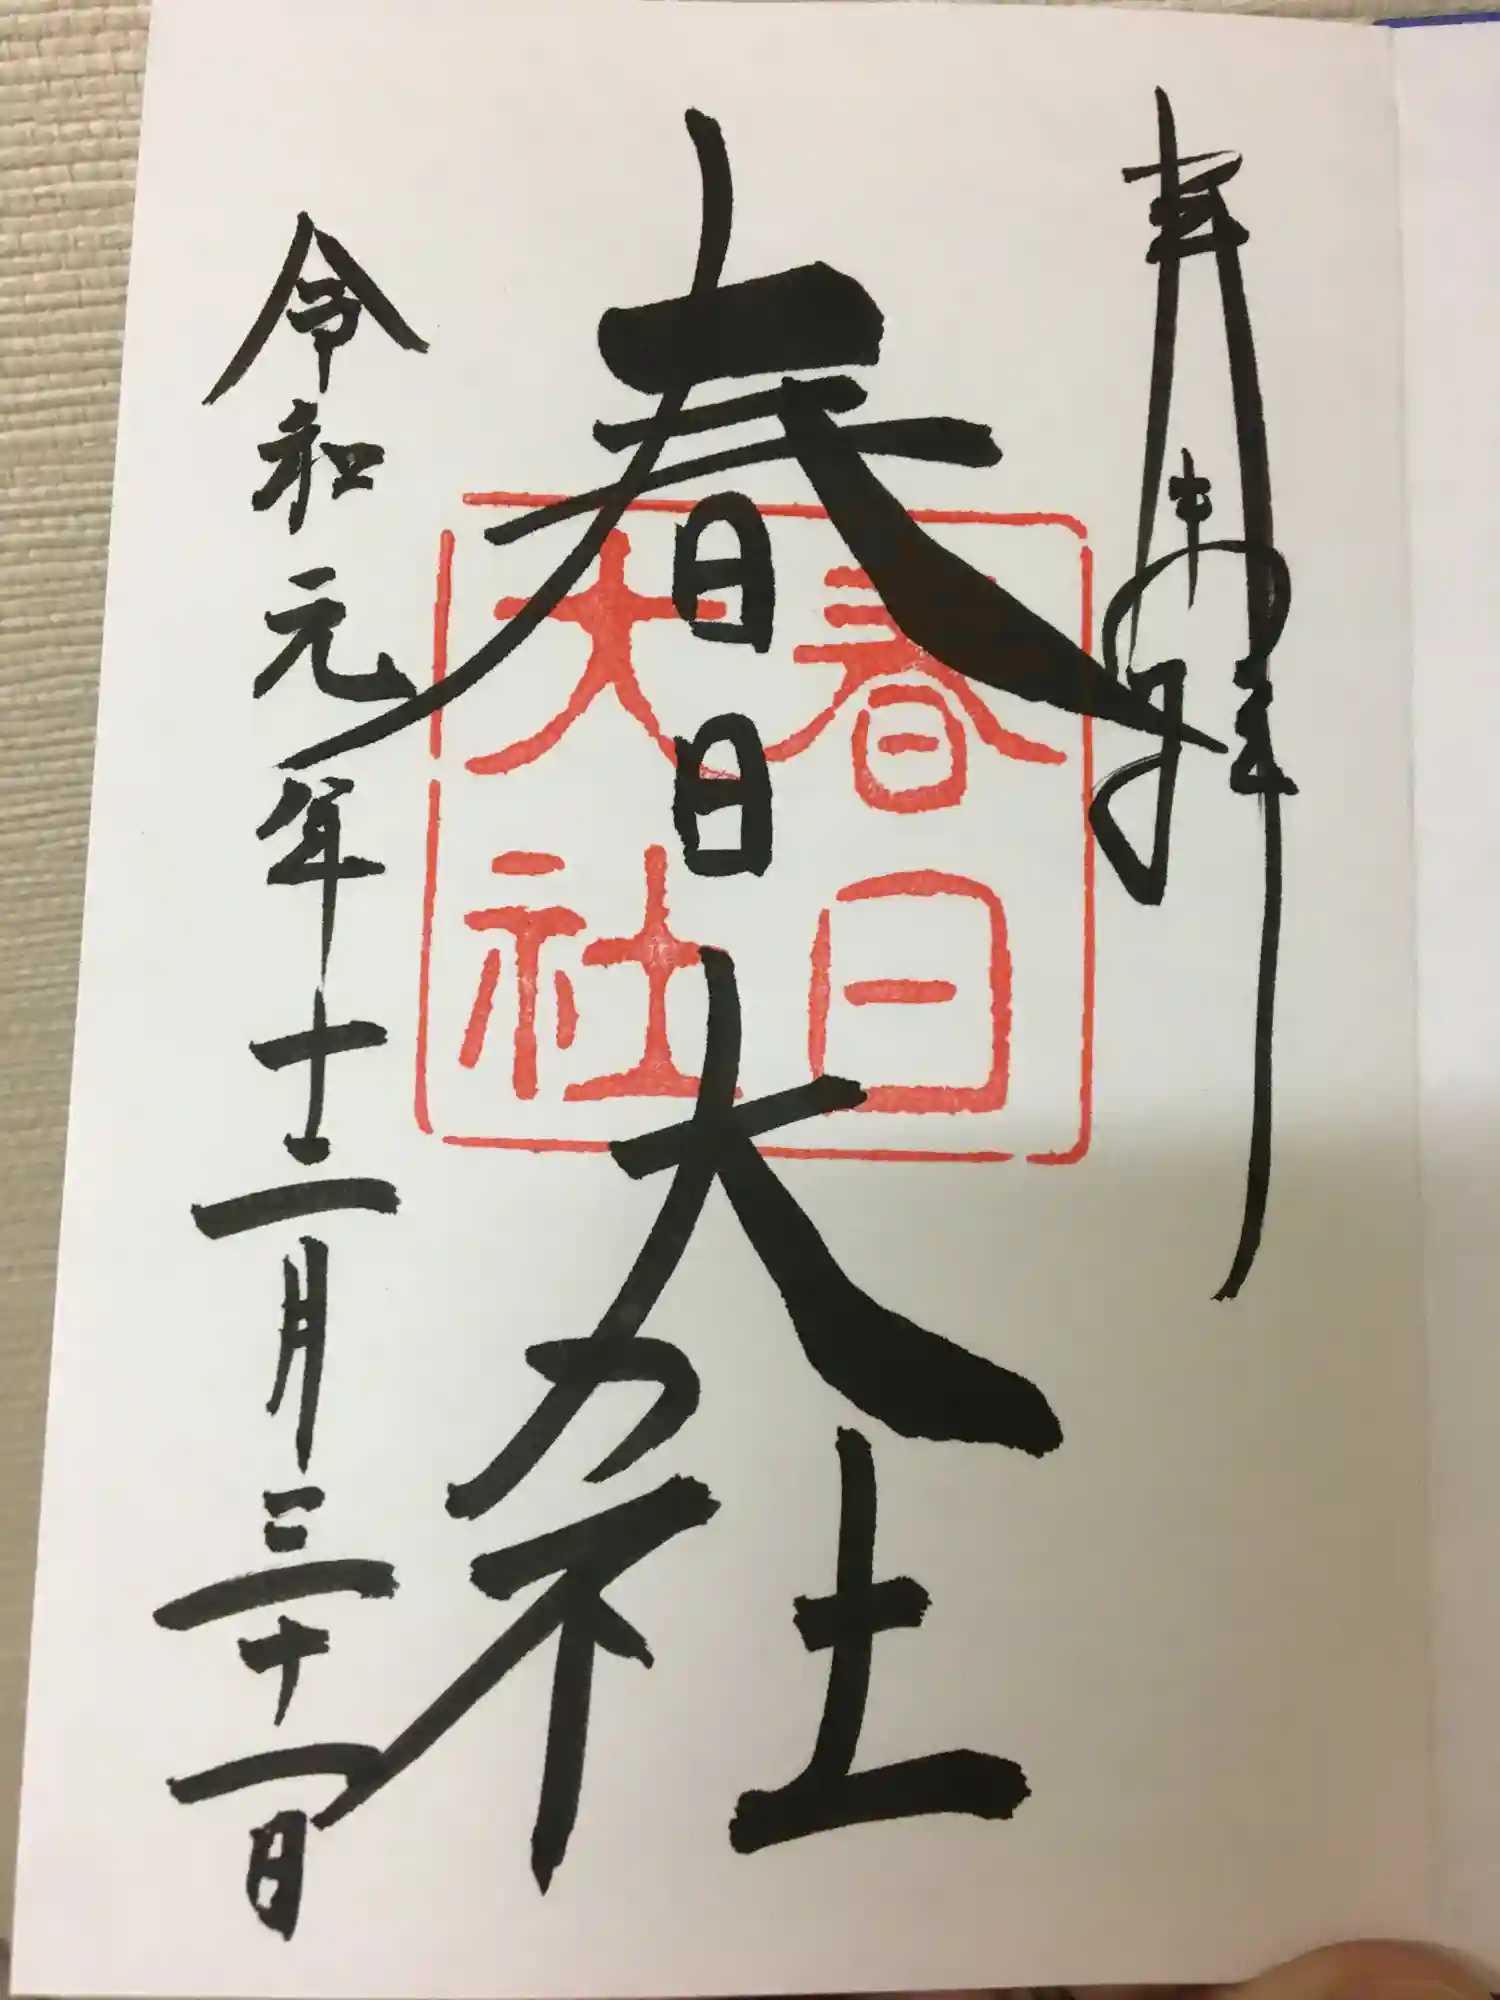 奉拝
春日大社
春日
大社
令和元年十二月三十一日